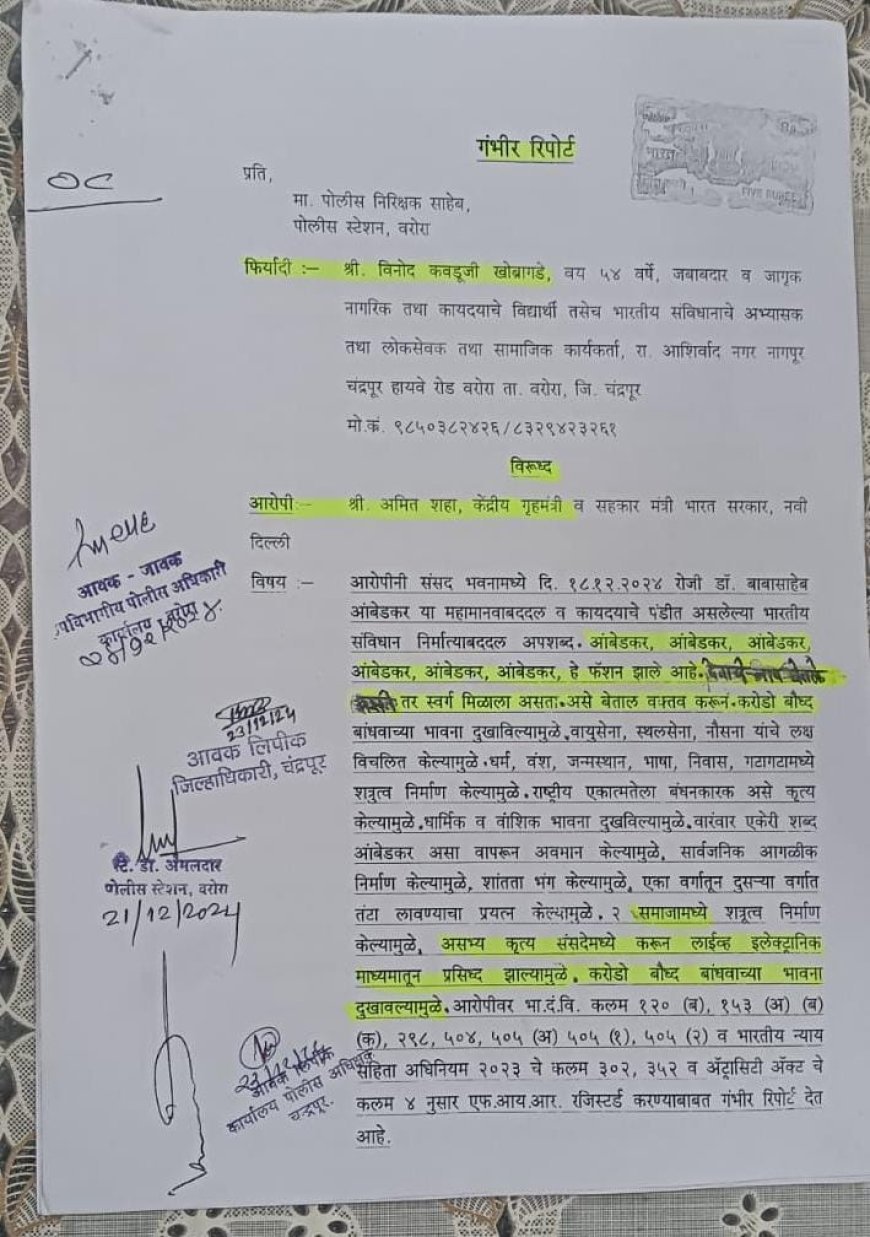 OC
गंभीर रिपोर्ट
FIVE RUPEES
प्रति,
मा. पोलीस निरिक्षक साहेब,
पोलीस स्टेशन, वरोरा
फिर्यादी :– श्री. विनोद कवडूजी खोब्रागडे, वय ५४ वर्षे, जबाबदार व जागृक
नागरिक तथा कायदयाचे विद्यार्थी तसेच भारतीय संविधानाचे अभ्यासक
तथा लोकसेवक तथा सामाजिक कार्यकर्ता, रा. आशिर्वाद नगर नागपूर
चंद्रपूर हायवे रोड वरोरा ता. वरोरा, जि. चंद्रपूर
मो.कं. ९८५०३८२४२६/८३२९४२३२६१
विरूध्द
आरोपी:– श्री. अमित शहा, केंद्रीय गृहमंत्री व सहकार मंत्री भारत सरकार, नवी
दिल्ली
विषय :– आरोपीनी संसद भवनामध्ये दि. १८.१२.२०२४ रोजी डॉ. बाबासाहेब
आंबेडकर या महामानवाबददल व कायदयाचे पंडीत असलेल्या भारतीय
संविधान निर्मात्याबददल अपशब्द. आंबेडकर, आंबेडकर, आंबेडकर,
आंबेडकर, आंबेडकर, आंबेडकर, हे फॅशन झाले आहे.
तर स्वर्ग मिळाला असता. असे बेताल वक्तव करून. करोडो बौध्द
बांधवाच्या भावना दुखाविल्यामुळे. वायुसेना, स्थलसेना, नौसना यांचे लक्ष
विचलित केल्यामुळे. धर्म, वंश, जन्मस्थान, भाषा, निवास, गटागटामध्ये
शत्रुत्व निर्माण केल्यामुळे. राष्ट्रीय एकात्मतेला बंधनकारक असे कृत्य
केल्यामुळे. धार्मिक व वांशिक भावना दुखविल्यामुळे. वारंवार एकेरी शब्द
आंबेडकर असा वापरून अवमान केल्यामुळे, सार्वजनिक आगळीक
निर्माण केल्यामुळे, शांतता भंग केल्यामुळे, एका वर्गातून दुसऱ्या वर्गात
तंटा लावण्याचा प्रयत्न केल्यामुळे. २ समाजामध्ये शत्रूत्व निर्माण
केल्यामुळे, असभ्य कृत्य संसदेमध्ये करून लाईव्ह इलेक्ट्रानिक
माध्यमातून प्रसिध्द झाल्यामुळे. करोडो बौध्द बांधवाच्या भावना
दुखावल्यामुळे. आरोपीवर भा.दं.वि. कलम १२० (ब), १५३ (अ) (ब)
(क), २९८, ५०४, ५०५ (अ) ५०५ (१), ५०५ (२) व भारतीय न्याय
संहिता अधिनियम २०२३ चे कलम ३०२, ३५२ व ॲट्रासिटी ॲक्ट चे
कलम ४ नुसार एफ.आय.आर. रजिस्टर्ड करण्याबाबत गंभीर रिपोर्ट देत
आहे.
आवक - जावक
उपविभागीय पोलीस अधिकारी
कार्यालय वरोरा
23/12/24
आवक लिपीक
जिल्हाधिकारी, चंद्रपूर
स्टे. डा. अंमलदार
पोलीस स्टेशन, वरोरा
21/12/2024
आवक लिपीक
कार्यालय पोलीस अधिक्षक
चंद्रपूर.